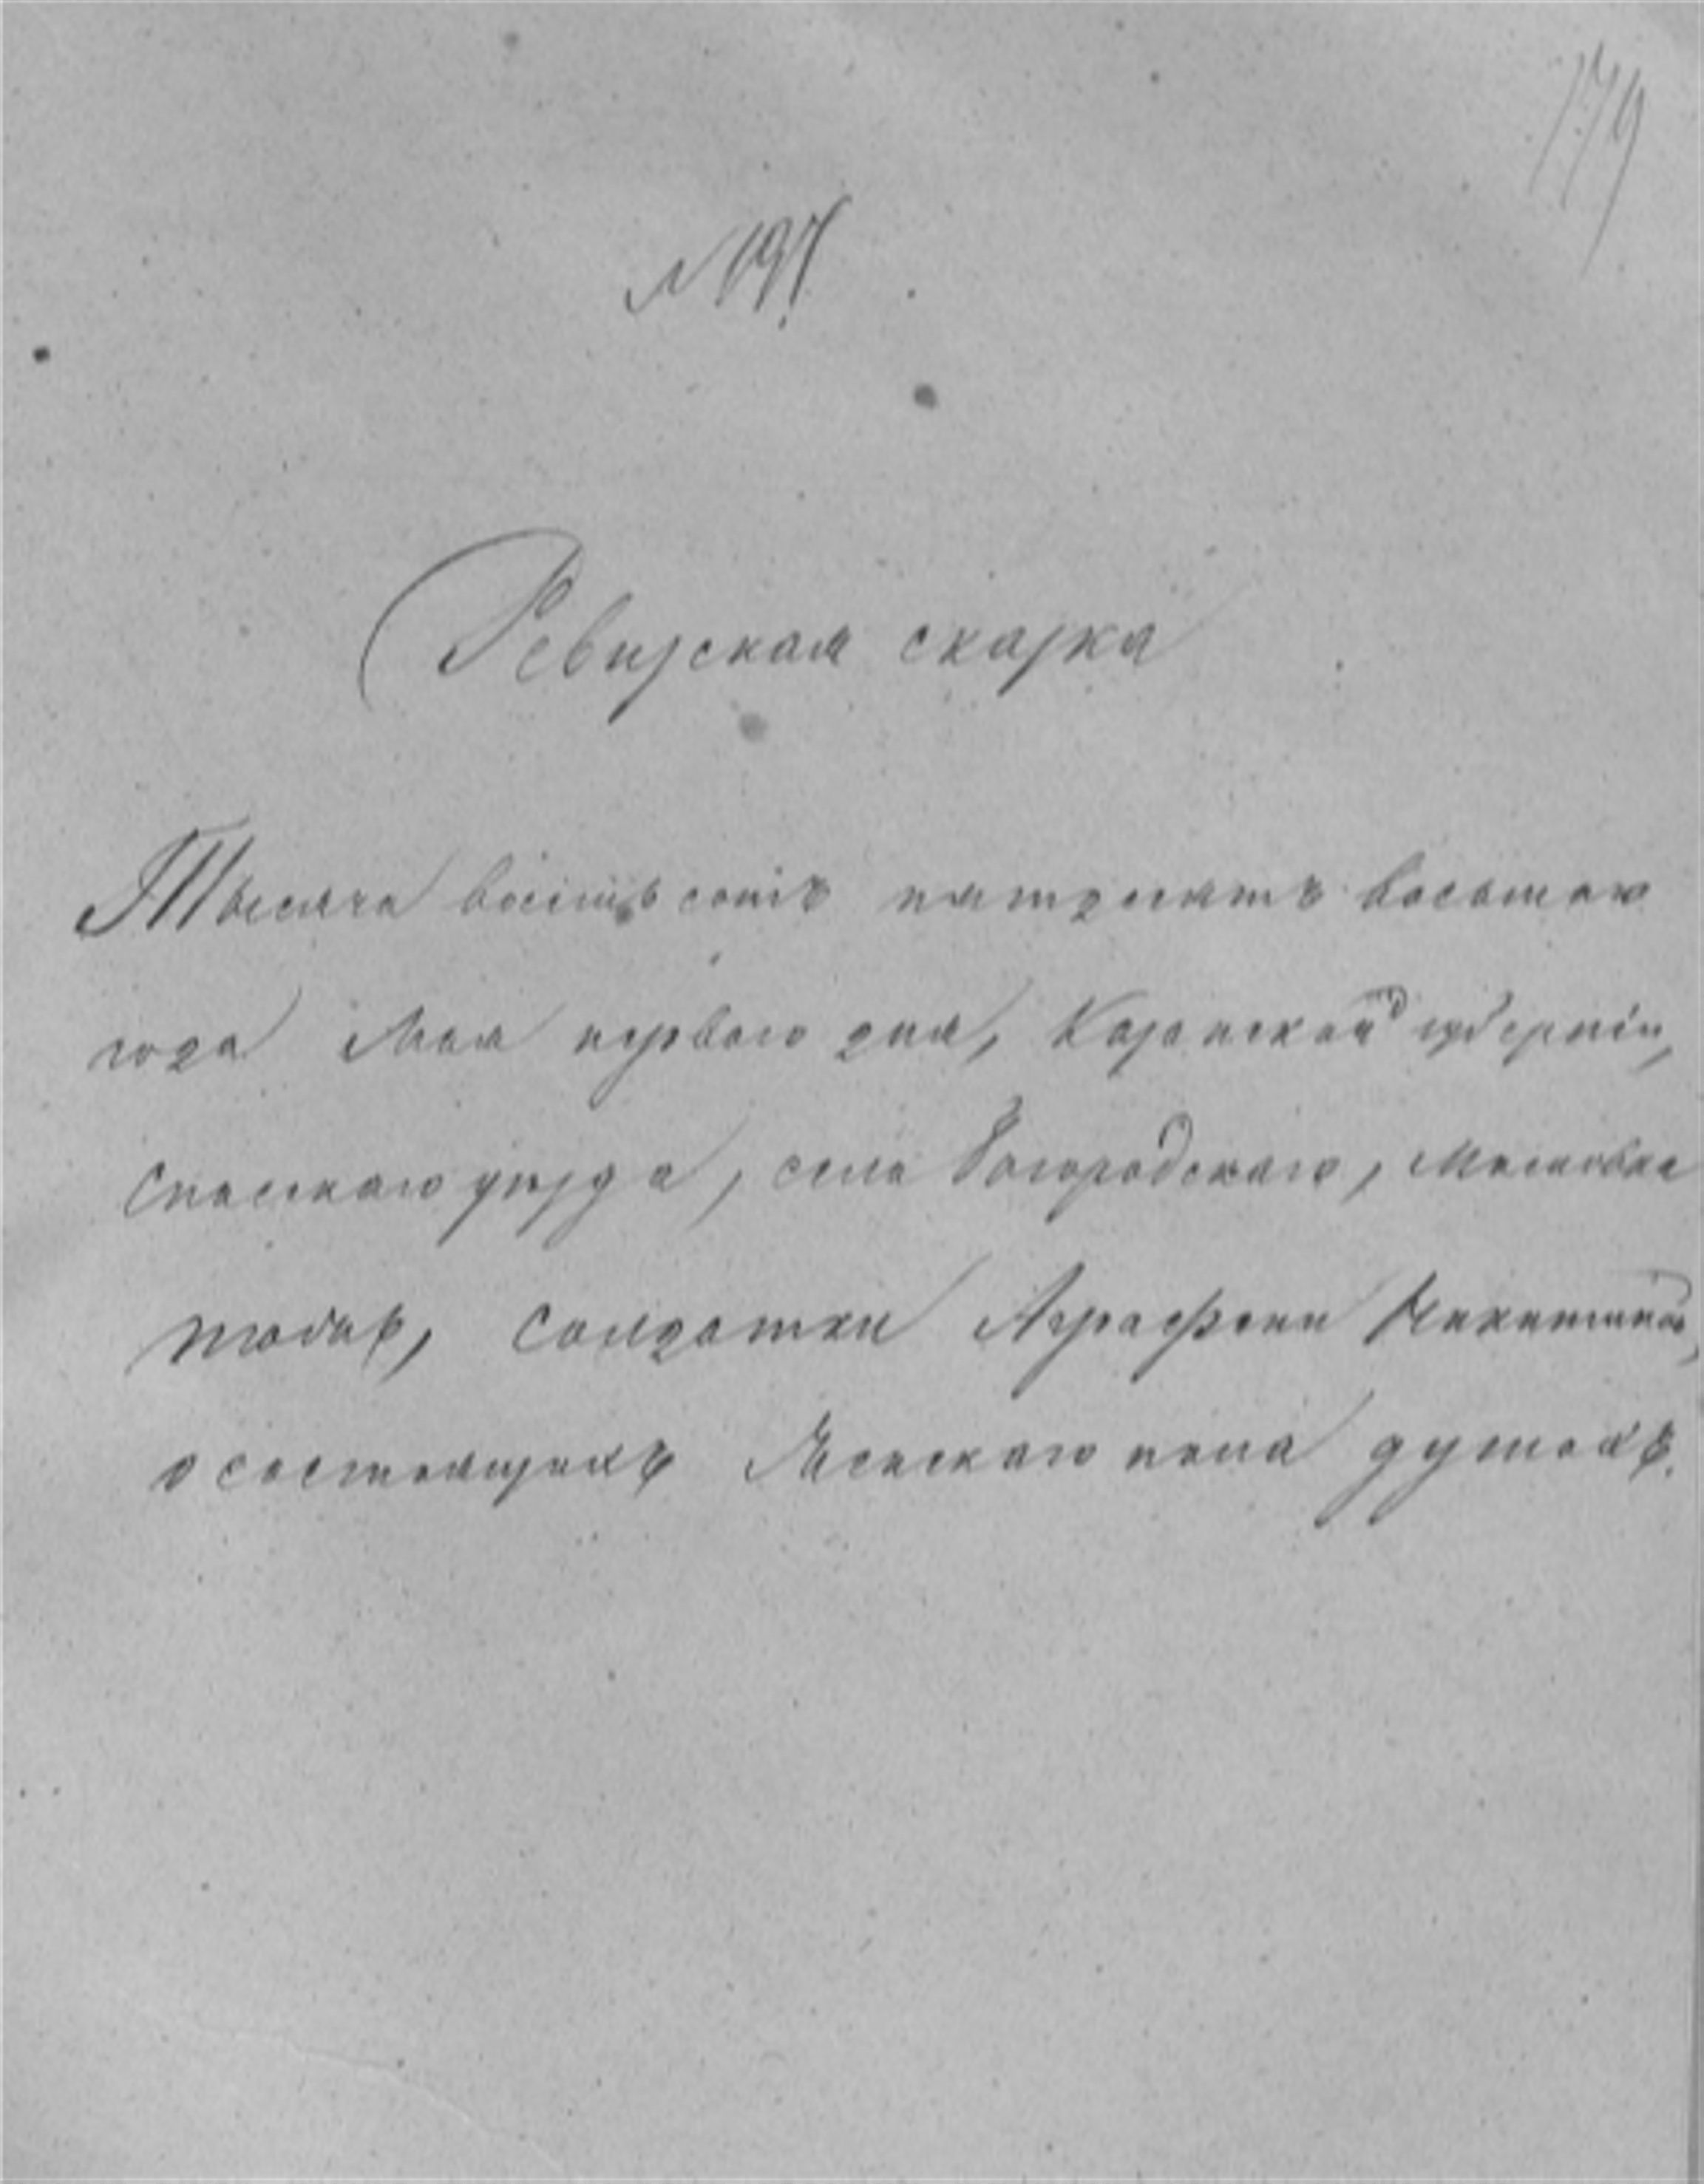 179
№ 197.
Ревизская сказка
Тысяча восемь сотъ пятьдесятъ восьмаго
года Мая перваго дня, Казанской губерніи,
Спасскаго уѣзда, села Богородскаго,
тожъ, Солдатки Аграфены Никитиной,
о состоящихъ Женскаго пола душахъ.